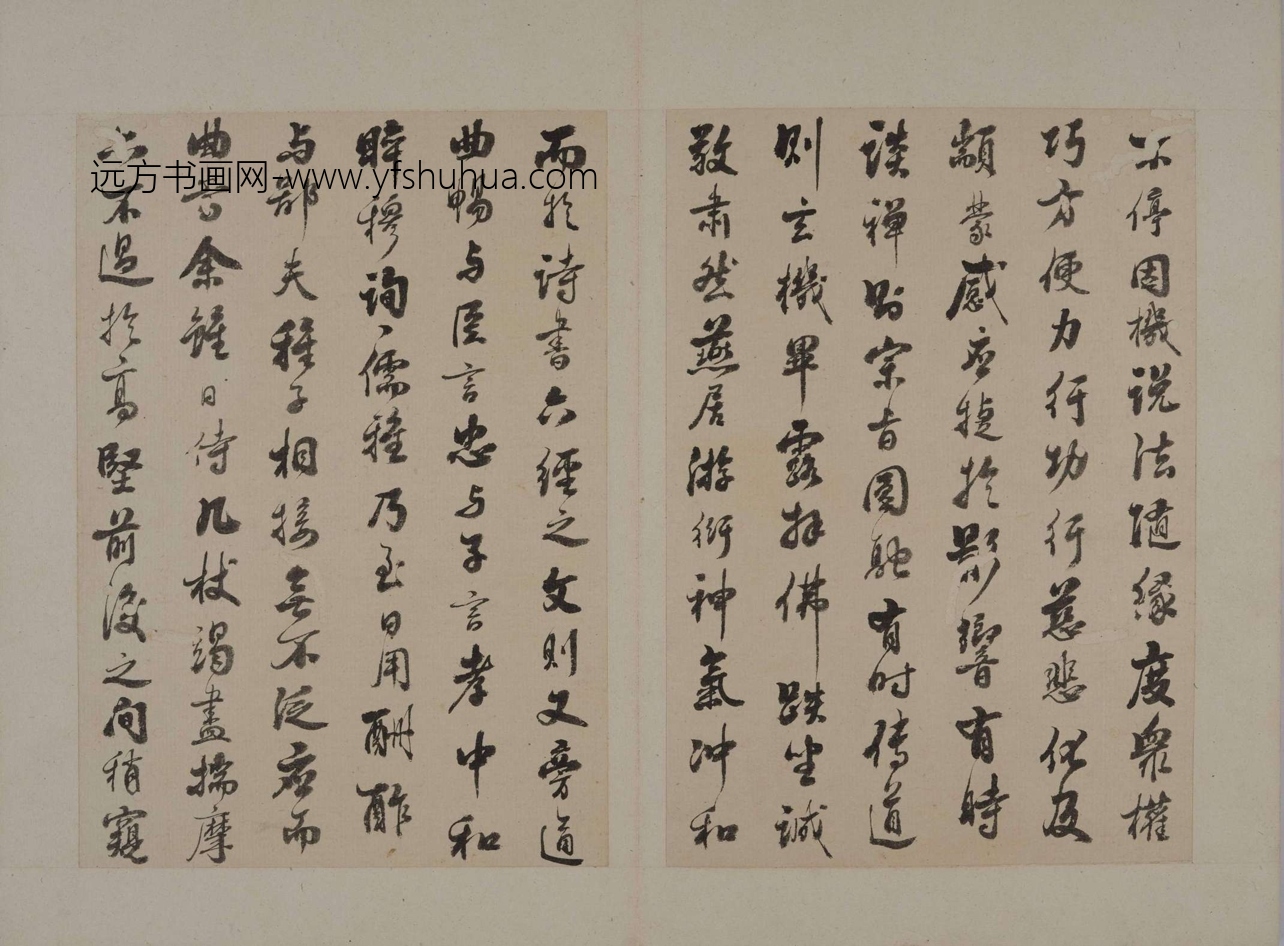 不停因機說法隨緣度眾權
巧方便力行功行慈悲化及
顓蒙感应捷於影響有時
談禪則宗旨圓融有时傳道
則玄機畢露拜佛趺坐誠
敬肅然燕居游衍神氣沖和
而於诗書六經之文則又旁通
曲暢与臣言忠与子言孝中和
睟穆詢〻儒雅乃至日用酬酢
与鄙夫稚子相接無不泛应而
曲當余雖日侍几杖竭盡揣摩
亦不過於高堅前後之间稍窺
远方书画网-www.yfshuhua.com